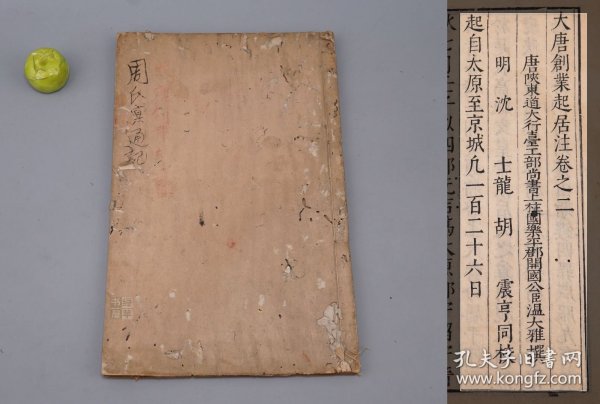 周氏冥通記
大唐創業起居注卷之二
唐陝東道大行臺工部尚書上柱國樂平郡開國公臣溫大雅撰
明 沈 士龍 胡 震亨同校
起自太原至京城凡一百二十六日
孔夫子旧书网
www.kongfz.com